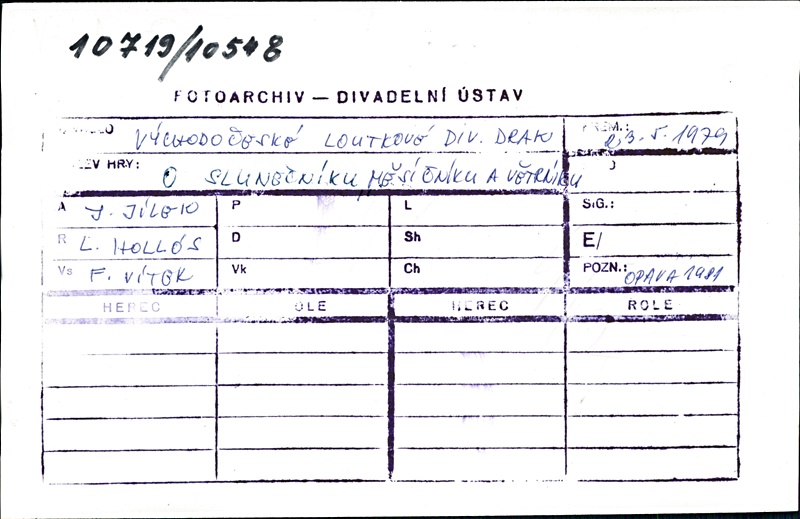 10719/10548
FOTOARCHIV — DIVADELNÍ ÚSTAV
VÝCHODOČESKÉ LOUTKOVÉ DIV. DRAK
23. 5. 1979
EV HRY: O SLUNEČNÍKU, MĚSÍČNÍKU A VĚTRNÍKU
A J. JÍLEK P L SIG.:
R L. HOLLÓS D Sh E/
Vs F. VÍTEK Vk Ch POZN.: OPAVA 1981
HEREC OLE HEREC ROLE